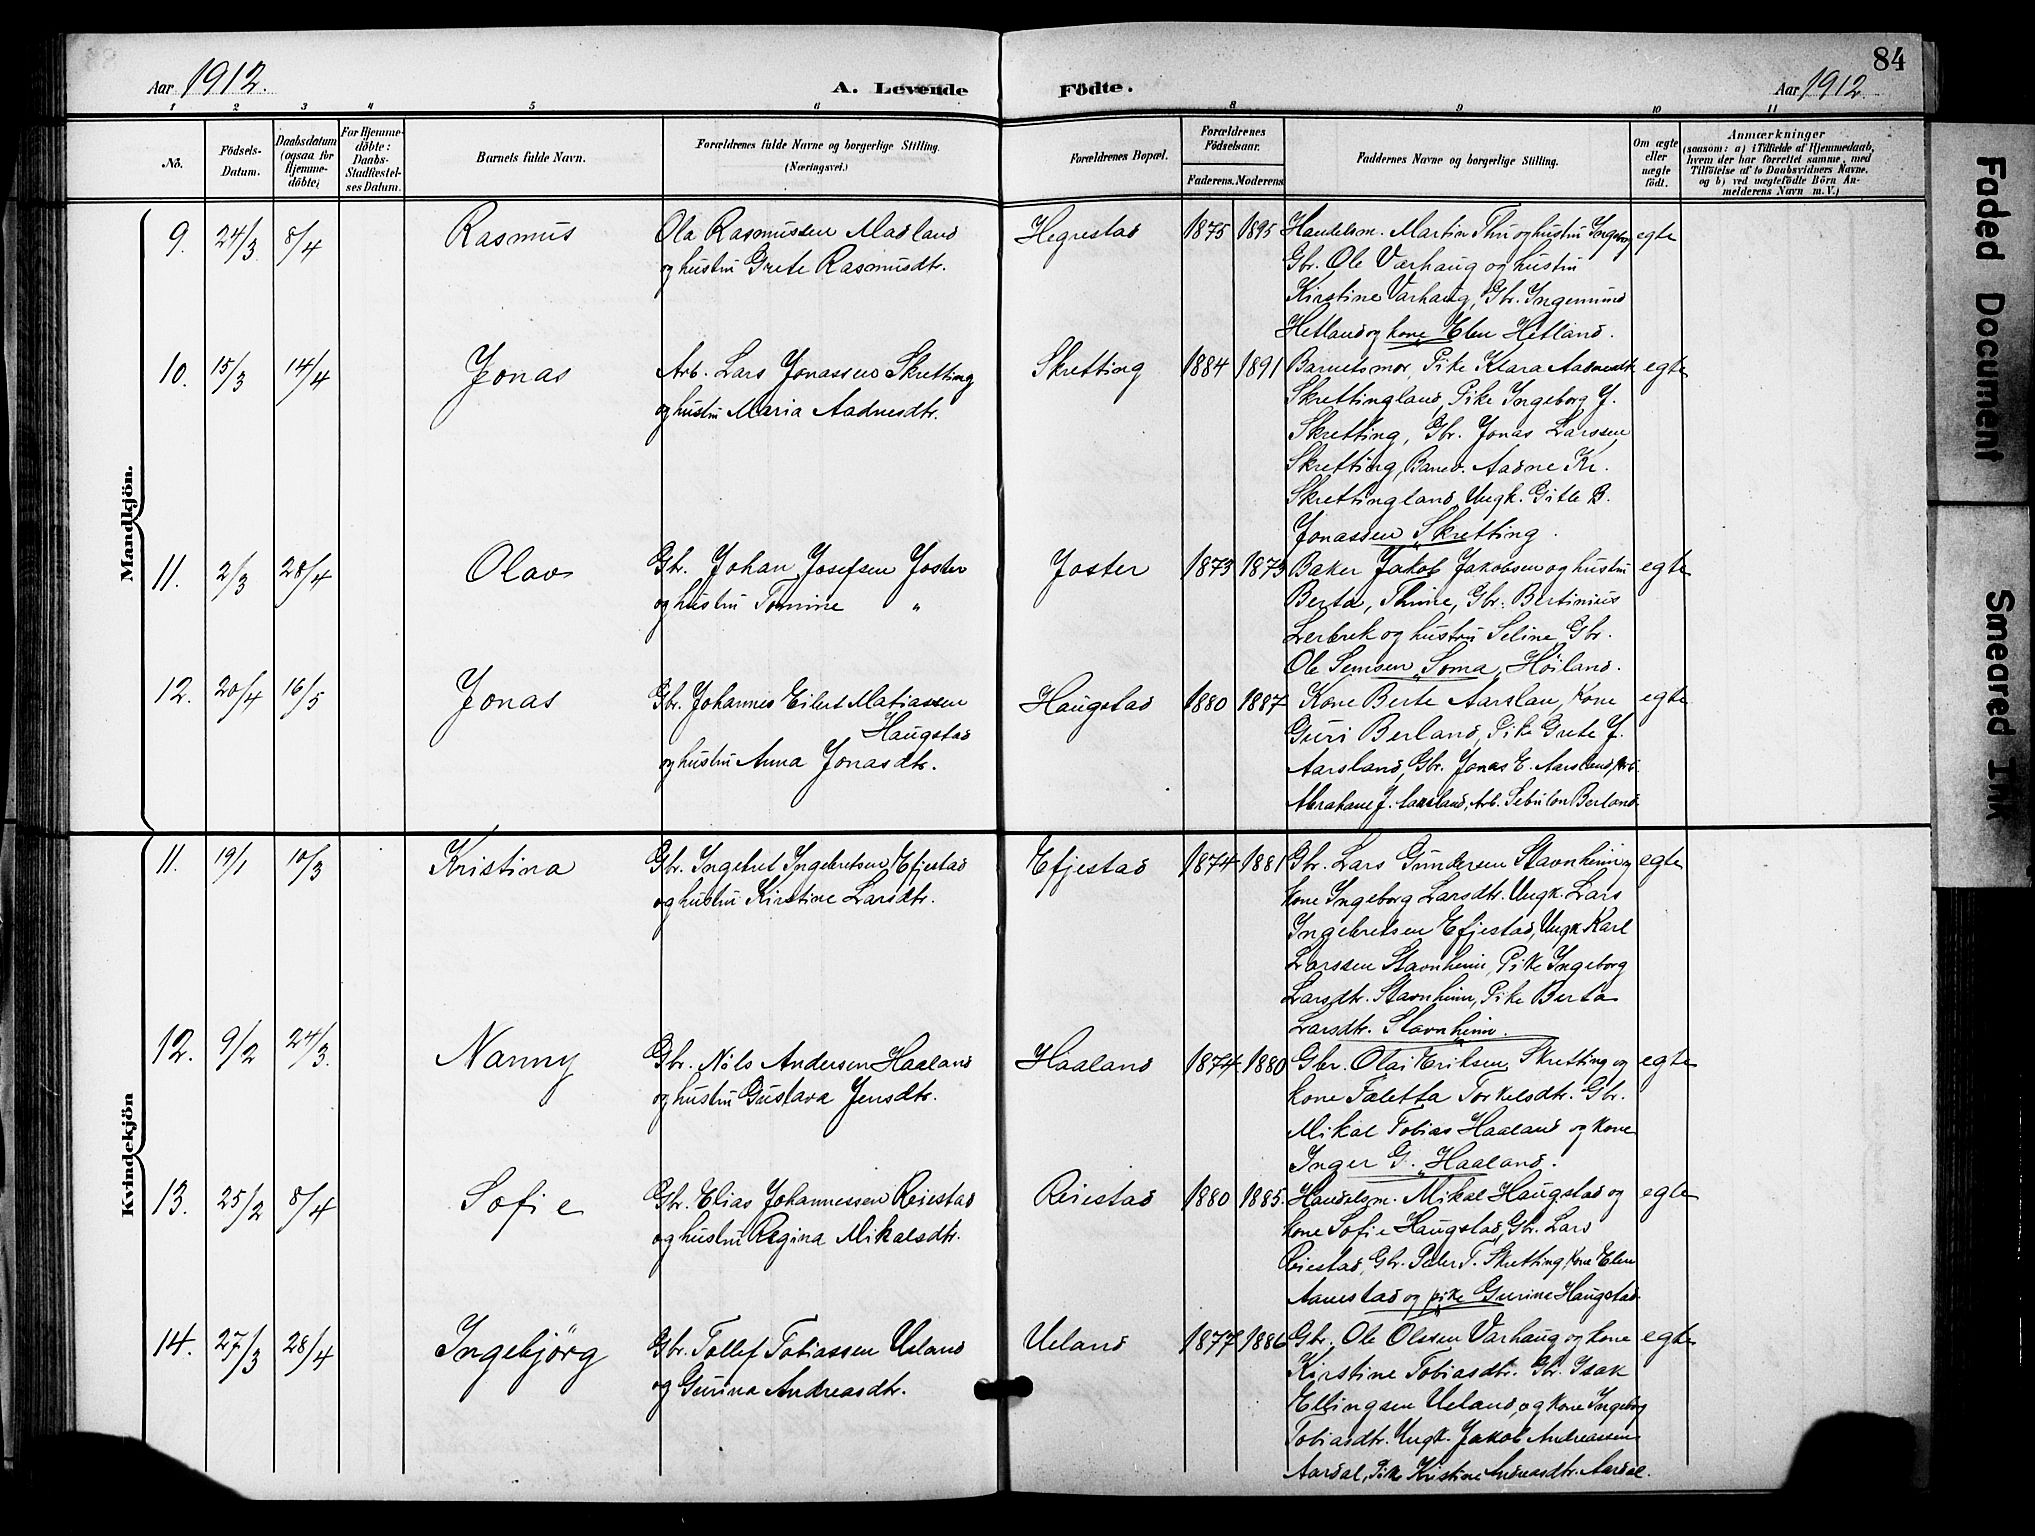 84
Aar 1912.
A. Levende
Födte.
Aar 1912.
1 2 3 4 5 6 8 9 10 11
No.
Födsels-
Datum.
Daabsdatum
(ogsaa for
Hjemme-
döbte)
For Hjemme-
döbte:
Daabs-
Stadfestel-
ses Datum.
Barnets fulde Navn.
Forældrenes fulde Navne og borgerlige Stilling.
(Næringsvei.)
Forældrenes Bopæl.
Forældrenes
Födselsaar.
Faderens. Moderens.
Faddernes Navne og borgerlige Stilling.
Om ægte
eller
uægte
födt.
Anmærkninger
(saasom: a) i Tilfælde af Hjemmedaab,
hvem der har forrettet samme, med
Tilföielse af to Daabsvidners Navne,
og b) ved uægtefödte Börn An-
melderens Navn m. V.)
Mandkjön.
9. 24/3 8/4 Rasmus
Ola Rasmussen Madland
og hustru Grete Rasmusdtr.
Hegrestad 1875 1895
Handelsm. Martin Thu og hustru Ingeborg egte
Gbr. Ole Varhaug og hustru
Kirstine Varhaug, Gbr. Ingemund
Hetland og kone Elen Hetland.
10. 15/3 14/4 Jonas
Arb. Lars Jonassen Skretting
og hustru Maria Aadnesdtr.
Skretting 1884 1891
Barnets mor, Pike Klara Aadnesdtr. egte
Skrettingland, Pike Ingeborg J.
Skretting, Gbr. Jonas Larssen
Skretting, Banev. Aadne Kr.
Skrettingland, Ungk. Gitle B.
Jonassen Skretting.
11. 2/3 28/4 Olav
Gbr. Johan Josefsen Joster
og hustru Tomine "
Joster 1873 1873
Baker Jakob Jakobsen og hustru egte
Berta, Thime, Gbr. Bertinius
Lerbrek og hustru Seline, Gbr.
Ole Semsen Soma, Höiland.
12. 20/4 16/5 Jonas
Gbr. Johannes Eilert Matiassen
Haugstad
og hustru Anna Jonasdtr.
Haugstad 1880 1887
Kone Berte Aarslan, Kone egte
Guri Berland, Pike Grete J.
Aarsland, Gbr. Jonas E. Aarsland, Arb.
Abrahame J. Aarsland, Arb. Sebulon Berland.
Kvindekjön
11. 19/1 10/3 Kristina
Gbr. Ingebret Ingebretsen Efjestad
og hustru Kirstine Larsdtr.
Efjestad 1874 1881
Gbr. Lars Gundersen Stavnheim og egte
kone Ingeborg Larsdtr. Ungk. Lars
Ingebretsen Efjestad, Ungk Karl
Larssen Stavnheim, Pike Ingeborg
Larsdtr. Stavnheim, Pike Berta
Larsdtr. Stavnheim.
12. 9/2 24/3. Nanny
Gbr. Nils Andersen Haaland
og hustru Gustava Jensdtr.
Haaland 1874 1880
Gbr. Olai Eriksen Skretting og egte
kone Taletta Torkelsdtr. Gbr.
Mikal Tobias Haaland og kone
Inger G. Haaland.
13. 25/2 8/4 Sofie
Gbr. Elias Johannessen Reiestad
og hustru Regina Mikalsdtr.
Reiestad 1880 1885.
Handelsm. Mikal Haugstad og egte
kone Sofie Haugstad, Gbr. Lars
Reiestad, Gbr. Peder T. Skretting, kone Elen
Aanestad og pike Gurine Haugstad
14. 27/3 28/4 Ingebjörg
Gbr. Tollef Tobiassen Ueland
og Gurina Andreasdtr.
Ueland 1877 1886
Gbr. Ole Olssen Varhaug og kone egte
Kirstine Tobiasdtr. Gbr. Isak
Ellingsen Ueland, og kone Ingeborg
Tobiasdtr. Ungk. Jakob Andreassen
Aardal, Pike Kristine Andreasdtr. Aardal.
Faded Document
Smeared Ink